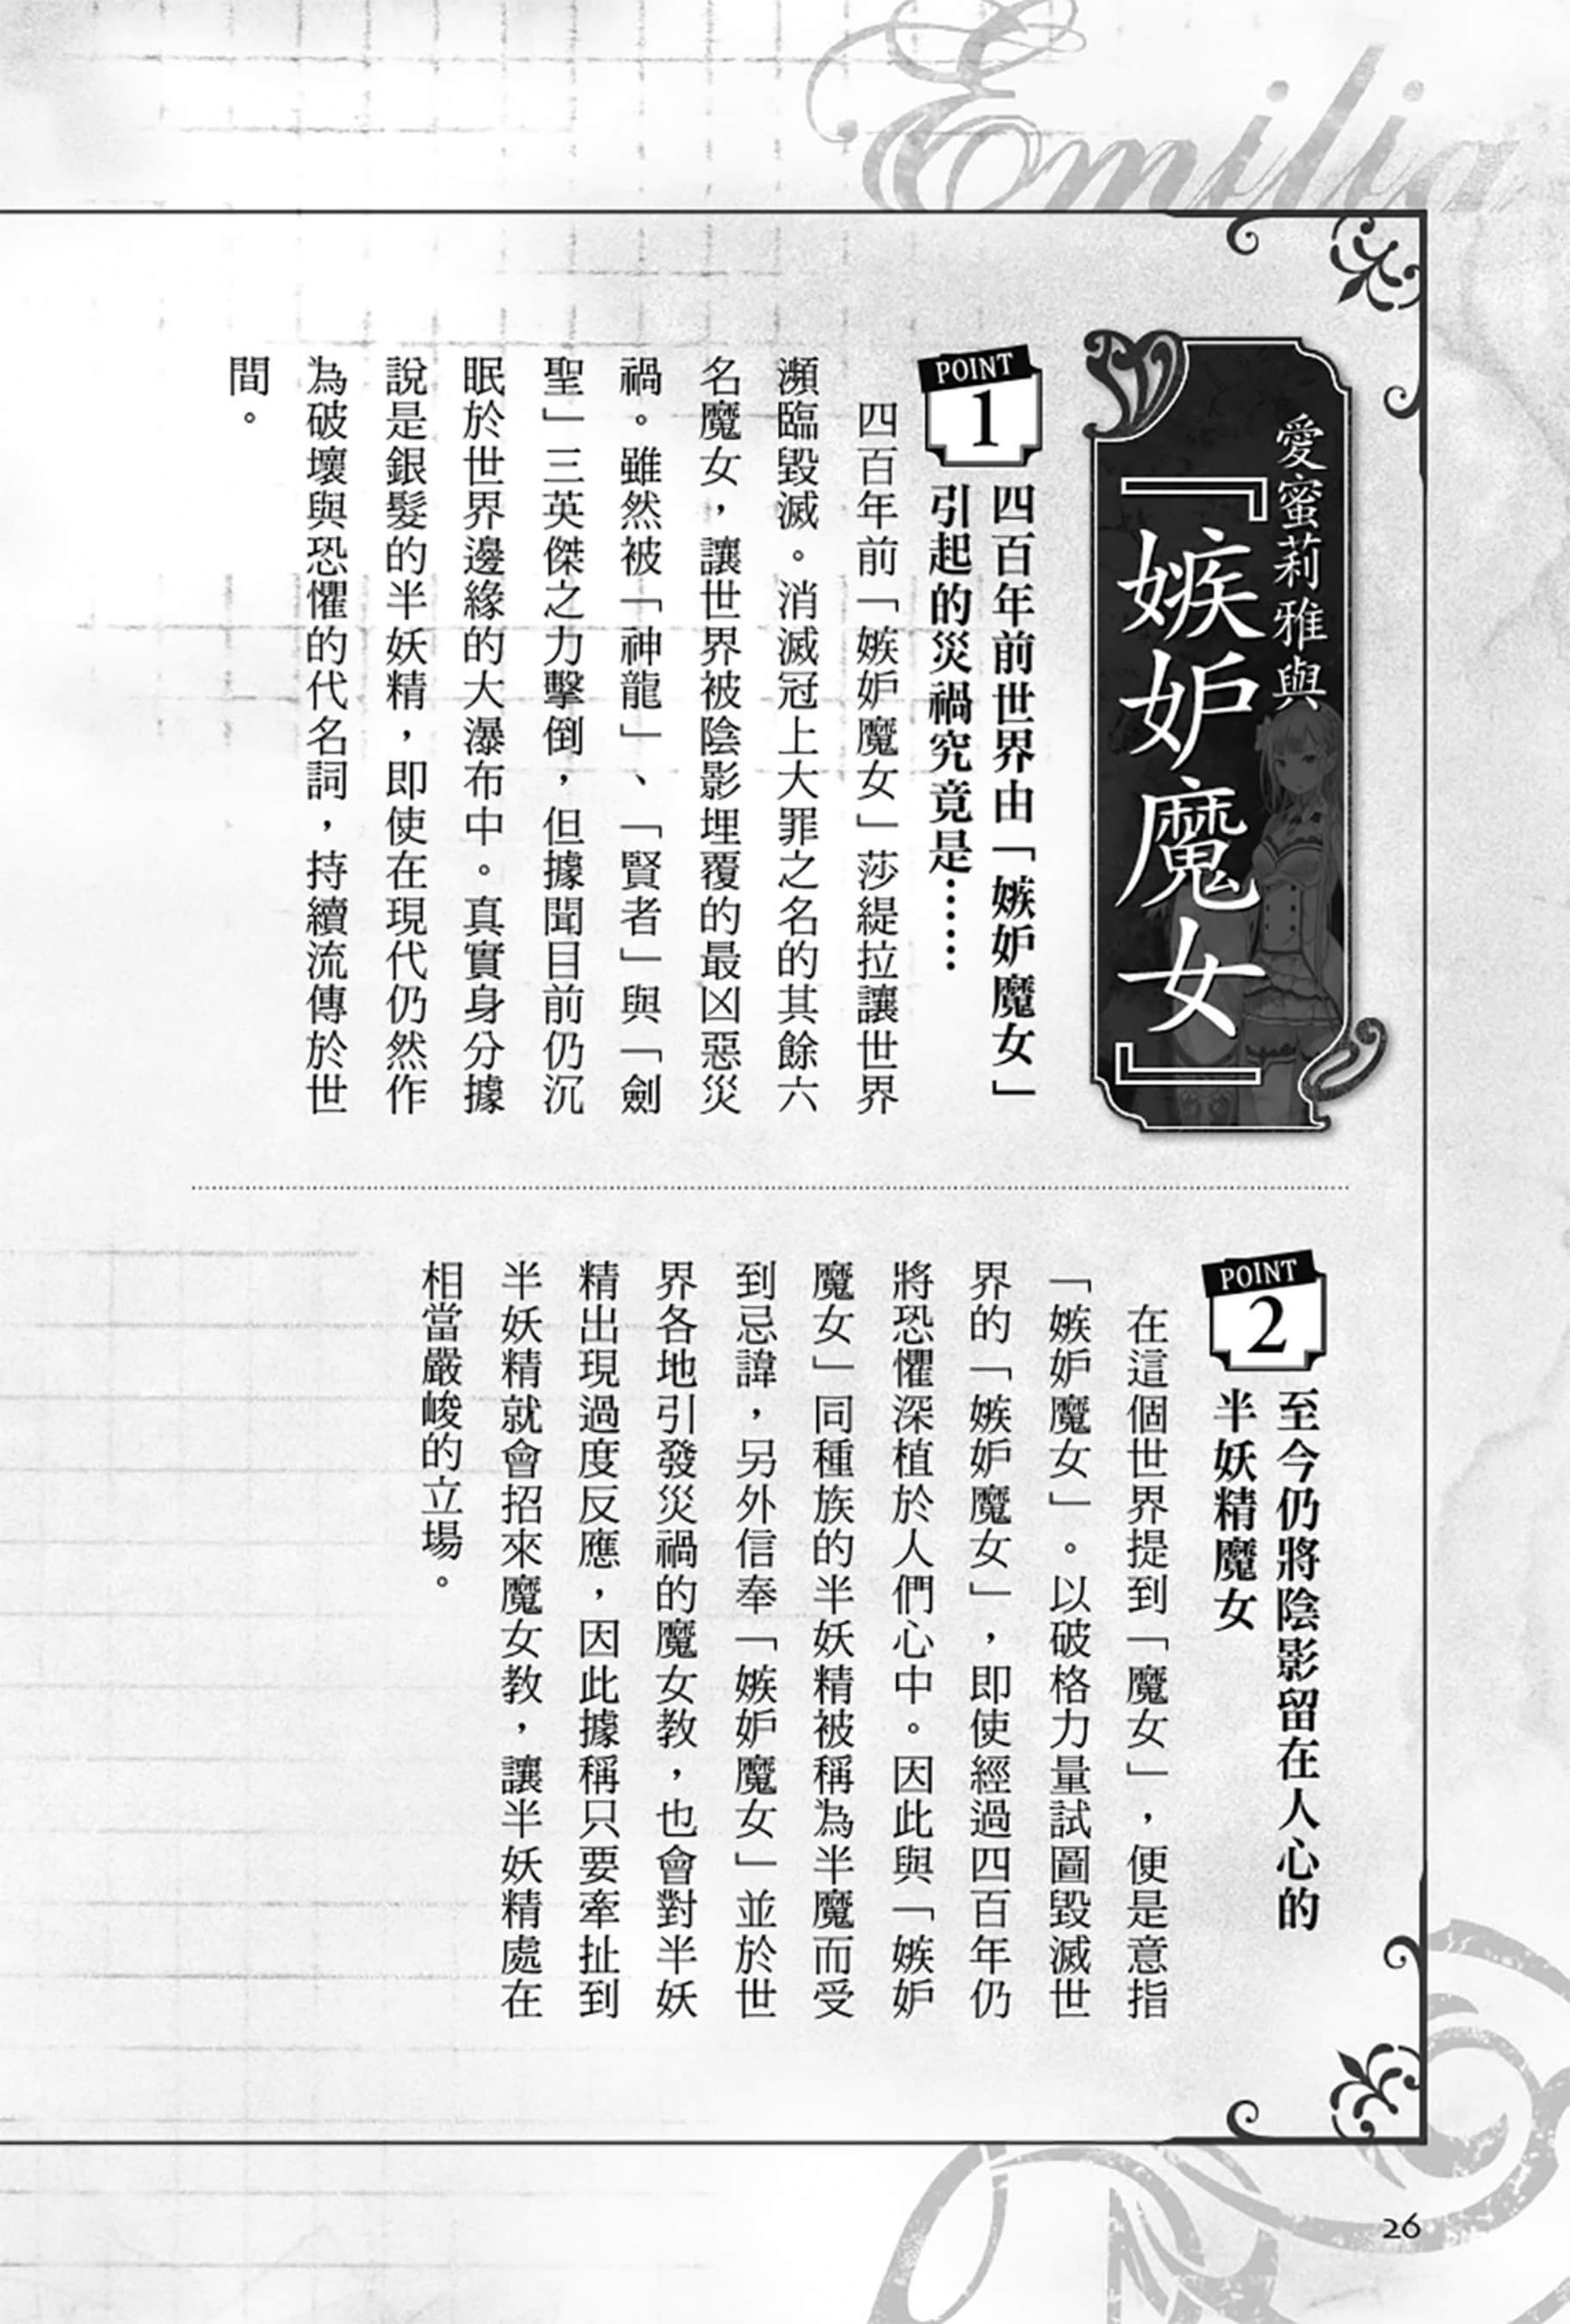 Emilia
愛蜜莉雅與
『嫉妒魔女』
POINT
1
四百年前世界由「嫉妒魔女」
引起的災禍究竟是……
四百年前「嫉妒魔女」莎緹拉讓世界
瀕臨毀滅。消滅冠上大罪之名的其餘六
名魔女，讓世界被陰影埋覆的最凶惡災
禍。雖然被「神龍」、「賢者」與「劍
聖」三英傑之力擊倒，但據聞目前仍沉
眠於世界邊緣的大瀑布中。真實身分據
說是銀髮的半妖精，即使在現代仍然作
為破壞與恐懼的代名詞，持續流傳於世
間。
POINT
2
至今仍將陰影留在人心的
半妖精魔女
在這個世界提到「魔女」，便是意指
「嫉妒魔女」。以破格力量試圖毀滅世
界的「嫉妒魔女」，即使經過四百年仍
將恐懼深植於人們心中。因此與「嫉妒
魔女」同種族的半妖精被稱為半魔而受
到忌諱，另外信奉「嫉妒魔女」並於世
界各地引發災禍的魔女教，也會對半妖
精出現過度反應，因此據稱只要牽扯到
半妖精就會招來魔女教，讓半妖精處在
相當嚴峻的立場。
26